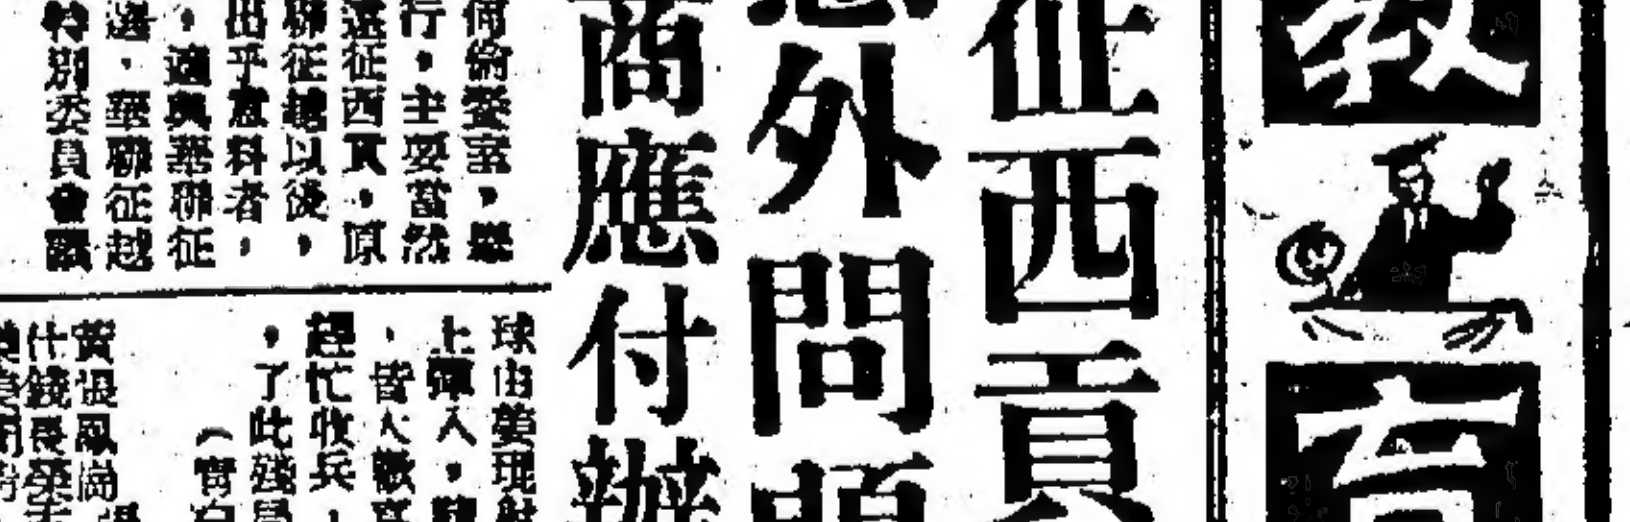 教育
征西貢
意外問題
商應付辦
何倫餐室,舉
行,主要當然
遠征西貢,原
聯征越以後,
出乎意料者,
,適與華聯征
選,華聯征越
特別委員會議
球由姜琨射
上彈入,
,皆大歡喜
趕忙收兵,
,了此殘局
(賓白